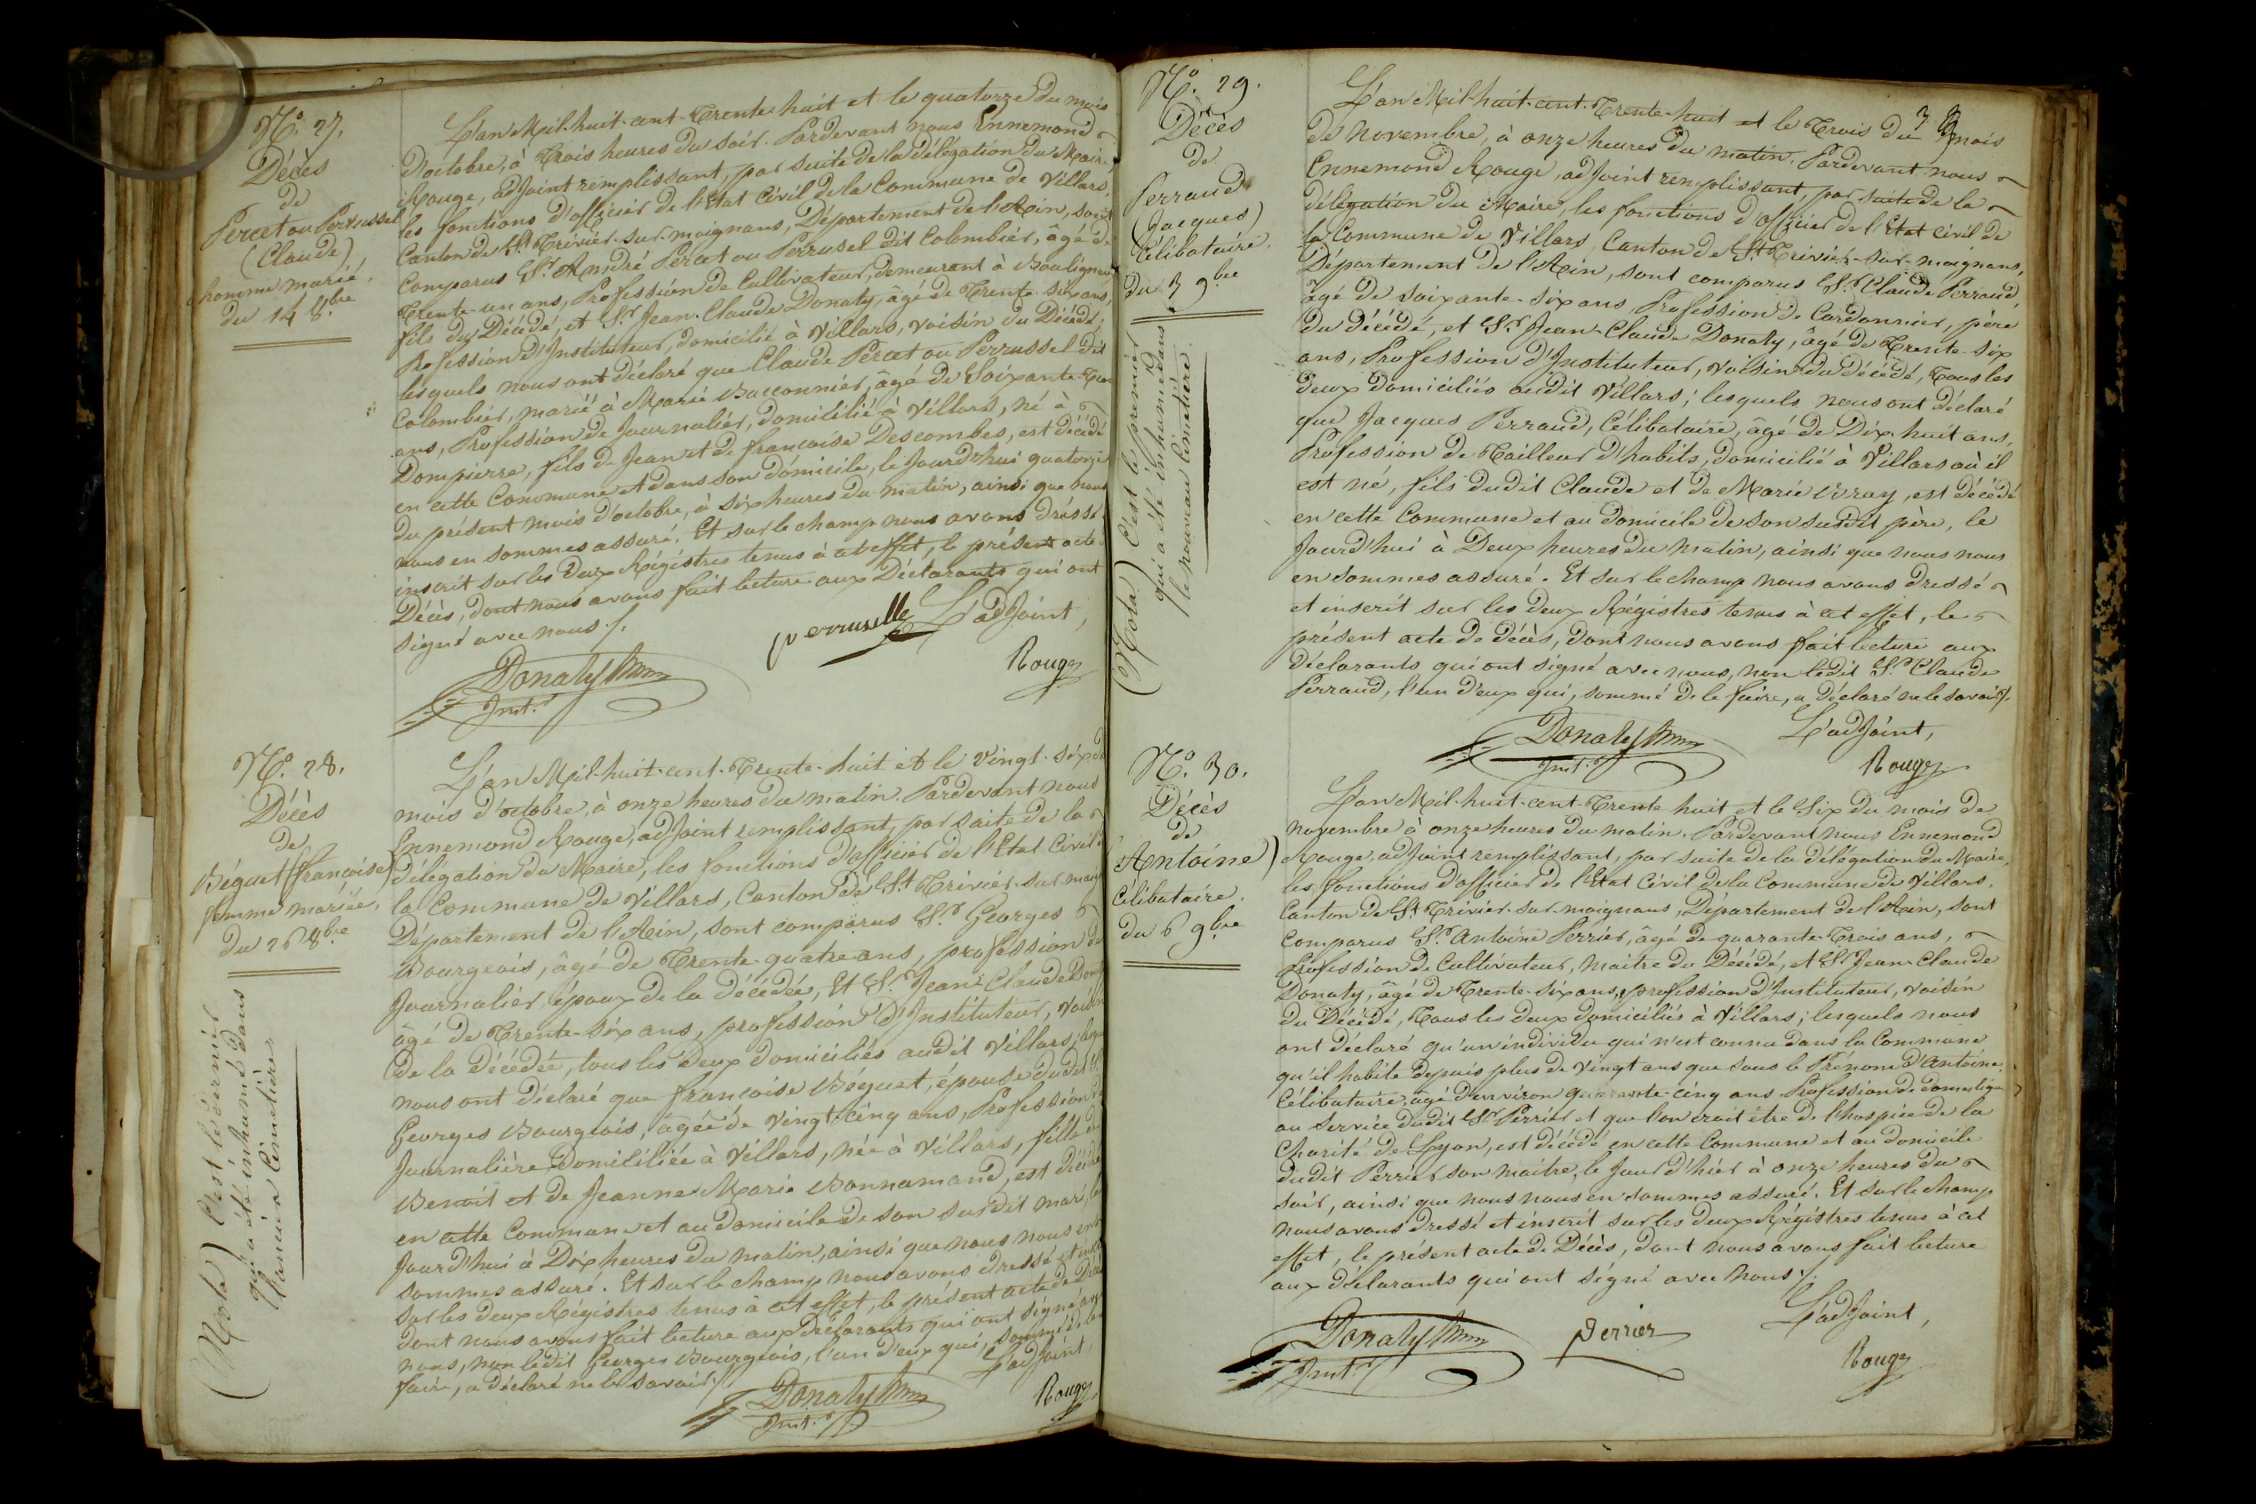 N.o 27.
Décès
de
Percet ou Perrussel
(Claude)
homme marié.
du 14 8.bre
L'an Mil-huit-cent-Trente-huit et le quatorze du mois
D'octobre, à Trois heures du soir. Pardevant nous Ennemond
Rouge, adjoint remplissant, par suite de la délégation du Maire
les fonctions d'officier de l'Etat Civil de la Commune de Villars,
Canton de St. Trivier-sur-moignans, Département de l'Ain, sont
Comparus Sr. André Percet ou Perrusel dit Colombier, âgé de
Trente-un ans, Profession de Cultivateur, demeurant à Bouligneux
fils du Décédé, et Sr. Jean-Claude Donaty, âgé de Trente-six ans,
Profession d'Instituteur, domicilié à Villars, voisin du Décédé;
lesquels nous ont déclaré que Claude Percet ou Perrussel dit
Colombier, marié à Marie Buconnier, âgé de Soixante
ans, Profession de Journalier, domicilié à Villars, né à
Dompierre, fils de Jean et de françoise Descombes, est décédé
en cette Commune et dans son domicile, le Jourd'hui quatorze
du présent mois d'octobre, à six heures du matin, ainsi que nous
nous en sommes assuré. Et sur le champ nous avons dressé
inscrit sur les deux Régistres tenus à cet effet, le présent acte
Décès, dont nous avons fait lecture aux Déclarants qui ont
signé avec nous /.
perruselle L'adjoint,
Donaty
Inst.r
Rouge
N.o 28.
Décès
de
Béguet (françoise)
femme mariée.
du 26 8.bre
(Nota) C'est le dernier
qui a été inhumé dans
l'ancien Cimetière
L'an Mil-huit-cent-Trente-huit et le vingt-six du
mois d'octobre, à onze heures du matin. Pardevant nous
Ennemond Rouge, adjoint remplissant, par suite de la
délégation du Maire, les fonctions d'officier de l'Etat Civil
la Commune de Villars, Canton de St. Trivier-sur-moig
Département de l'Ain, sont comparus Sr. Georges
Bourgeois, âgé de Trente-quatre ans, profession de
Journalier, époux de la décédée, Et Sr. Jean-Claude Donaty
âgé de Trente-six ans, profession d'Instituteur, voisin
de la décédée, tous les deux domiciliés audit Villars; lesq
nous ont déclaré que françoise Béguet, épouse dudit Sr.
Georges Bourgeois, âgée de vingt-cinq ans, Profession de
Journalière, domiciliée à Villars, née à Villars, fille de
Benoit et de Jeanne Marie Bonnamand, est décédée
en cette Commune et au domicile de son susdit mari, le
Jourd'hui à Dix heures du matin, ainsi que nous nous en
sommes assuré. Et sur le champ nous avons dressé et ins
sur les deux Régistres tenus à cet effet, le présent acte de Décès
dont nous avons fait lecture aux Déclarants qui ont signé avec
nous, non ledit Georges Bourgeois, l'un d'eux qui, sommé de le
faire, a déclaré ne le savoir /. L'adjoint,
Donaty
Inst.r
Rouge
N.o 29.
Décès
de
Perraud
(Jacques)
Célibataire.
du 3 9.bre
(Nota) C'est le premier
qui a été inhumé dans
le nouveau Cimetière.
L'an Mil-huit-cent-Trente-huit et le Trois du mois
de novembre, à onze heures du matin. Pardevant nous
Ennemond Rouge, adjoint remplissant, par suite de la
délégation du Maire, les fonctions d'officier de l'Etat civil de
la Commune de Villars, Canton de St. Trivier-sur-moignans,
Département de l'Ain, sont comparus Sr. Claude Perraud,
âgé de soixante-six ans, Profession de Cordonnier, père
du décédé, et Sr. Jean-Claude Donaty, âgé de Trente-six
ans, Profession d'Instituteur, voisin du décédé, Tous les
deux domiciliés audit Villars; lesquels nous ont déclaré
que Jacques Perraud, Célibataire, âgé de Dix-huit ans,
Profession de Tailleur d'habits, domicilié à Villars où il
est né, fils dudit Claude et de Marie Vray, est décédé
en cette Commune et au domicile de son susdit père, le
Jourd'hui à Deux heures du matin, ainsi que nous nous
en sommes assuré. Et sur le champ nous avons dressé
et inscrit sur les deux Régistres tenus à cet effet, le
présent acte de décès, dont nous avons fait lecture aux
déclarants qui ont signé avec nous, non ledit Sr. Claude
Perraud, l'un d'eux qui, sommé de le faire, a déclaré ne le savoir /.
L'adjoint,
Donaty
Inst.r
Rouge
N.o 30.
Décès
de
(Antoine)
Célibataire.
du 6 9.bre
L'an Mil-huit-cent-Trente-huit et le Six du mois de
novembre à onze heures du matin. Pardevant nous Ennemond
Rouge, adjoint remplissant, par suite de la délégation du Maire,
les fonctions d'officier de l'Etat Civil de la Commune de Villars,
Canton de St. Trivier-sur-moignans, Département de l'Ain, sont
Comparus Sr. Antoine Perrier, âgé de quarante-Trois ans,
Profession de Cultivateur, Maitre du Décédé, et Sr. Jean-Claude
Donaty, âgé de Trente-six ans, profession d'Instituteur, voisin
du Décédé, Tous les deux domiciliés à Villars; lesquels nous
ont déclaré qu'un individu qui n'est connu dans la Commune
qu'il habite depuis plus de vingt ans que sous le Prénom d'Antoine
Célibataire, âgé d'environ quarante-cinq ans, Profession de domestique
au Service dudit Sr. Perrier et que l'on croit être de l'hospice de la
Charité de Lyon, est décédé en cette Commune et au domicile
dudit Perrier son maitre, le Jour d'hier à onze heures du
soir, ainsi que nous nous en sommes assuré. Et sur le champ
nous avons dressé et inscrit sur les deux Régistres tenus à cet
effet, le présent acte de Décès, dont nous avons fait lecture
aux déclarants qui ont signé avec nous /.
L'adjoint,
Donaty
Inst.r
perrier
Rouge